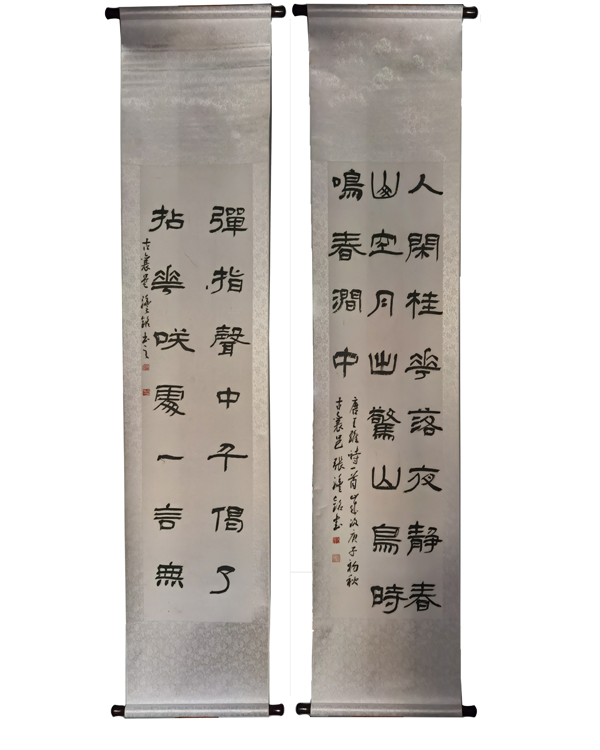 人閑桂華落夜靜春
山空月出驚山鳥時
鳴春澗中
唐王維詩一首歲次庚子初秋
古襄邑張銘書
彈指聲中千偈了
拈華咲處一言無
古襄邑銘書之